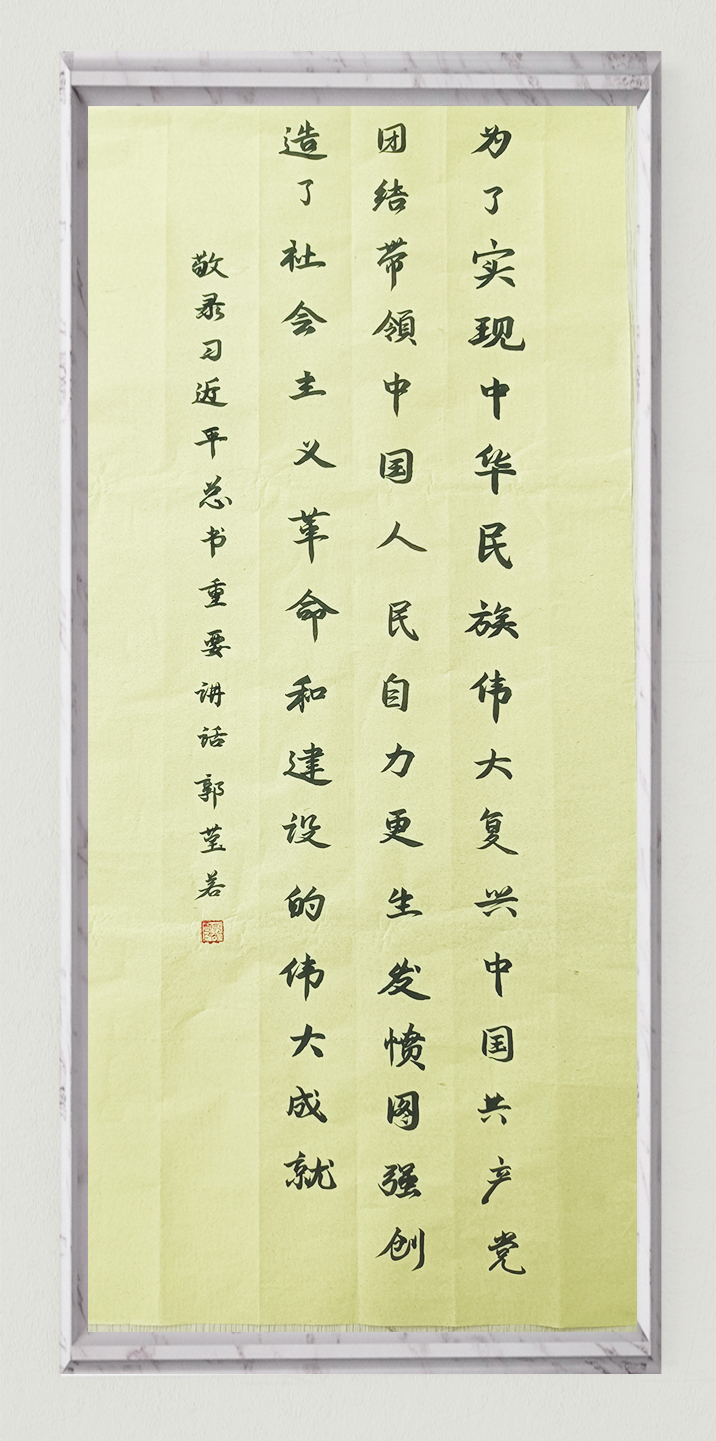 为了实现中华民族伟大复兴中国共产党
团结带领中国人民自力更生发愤图强创
造了社会主义革命和建设的伟大成就
敬录习近平总书重要讲话郭莹若